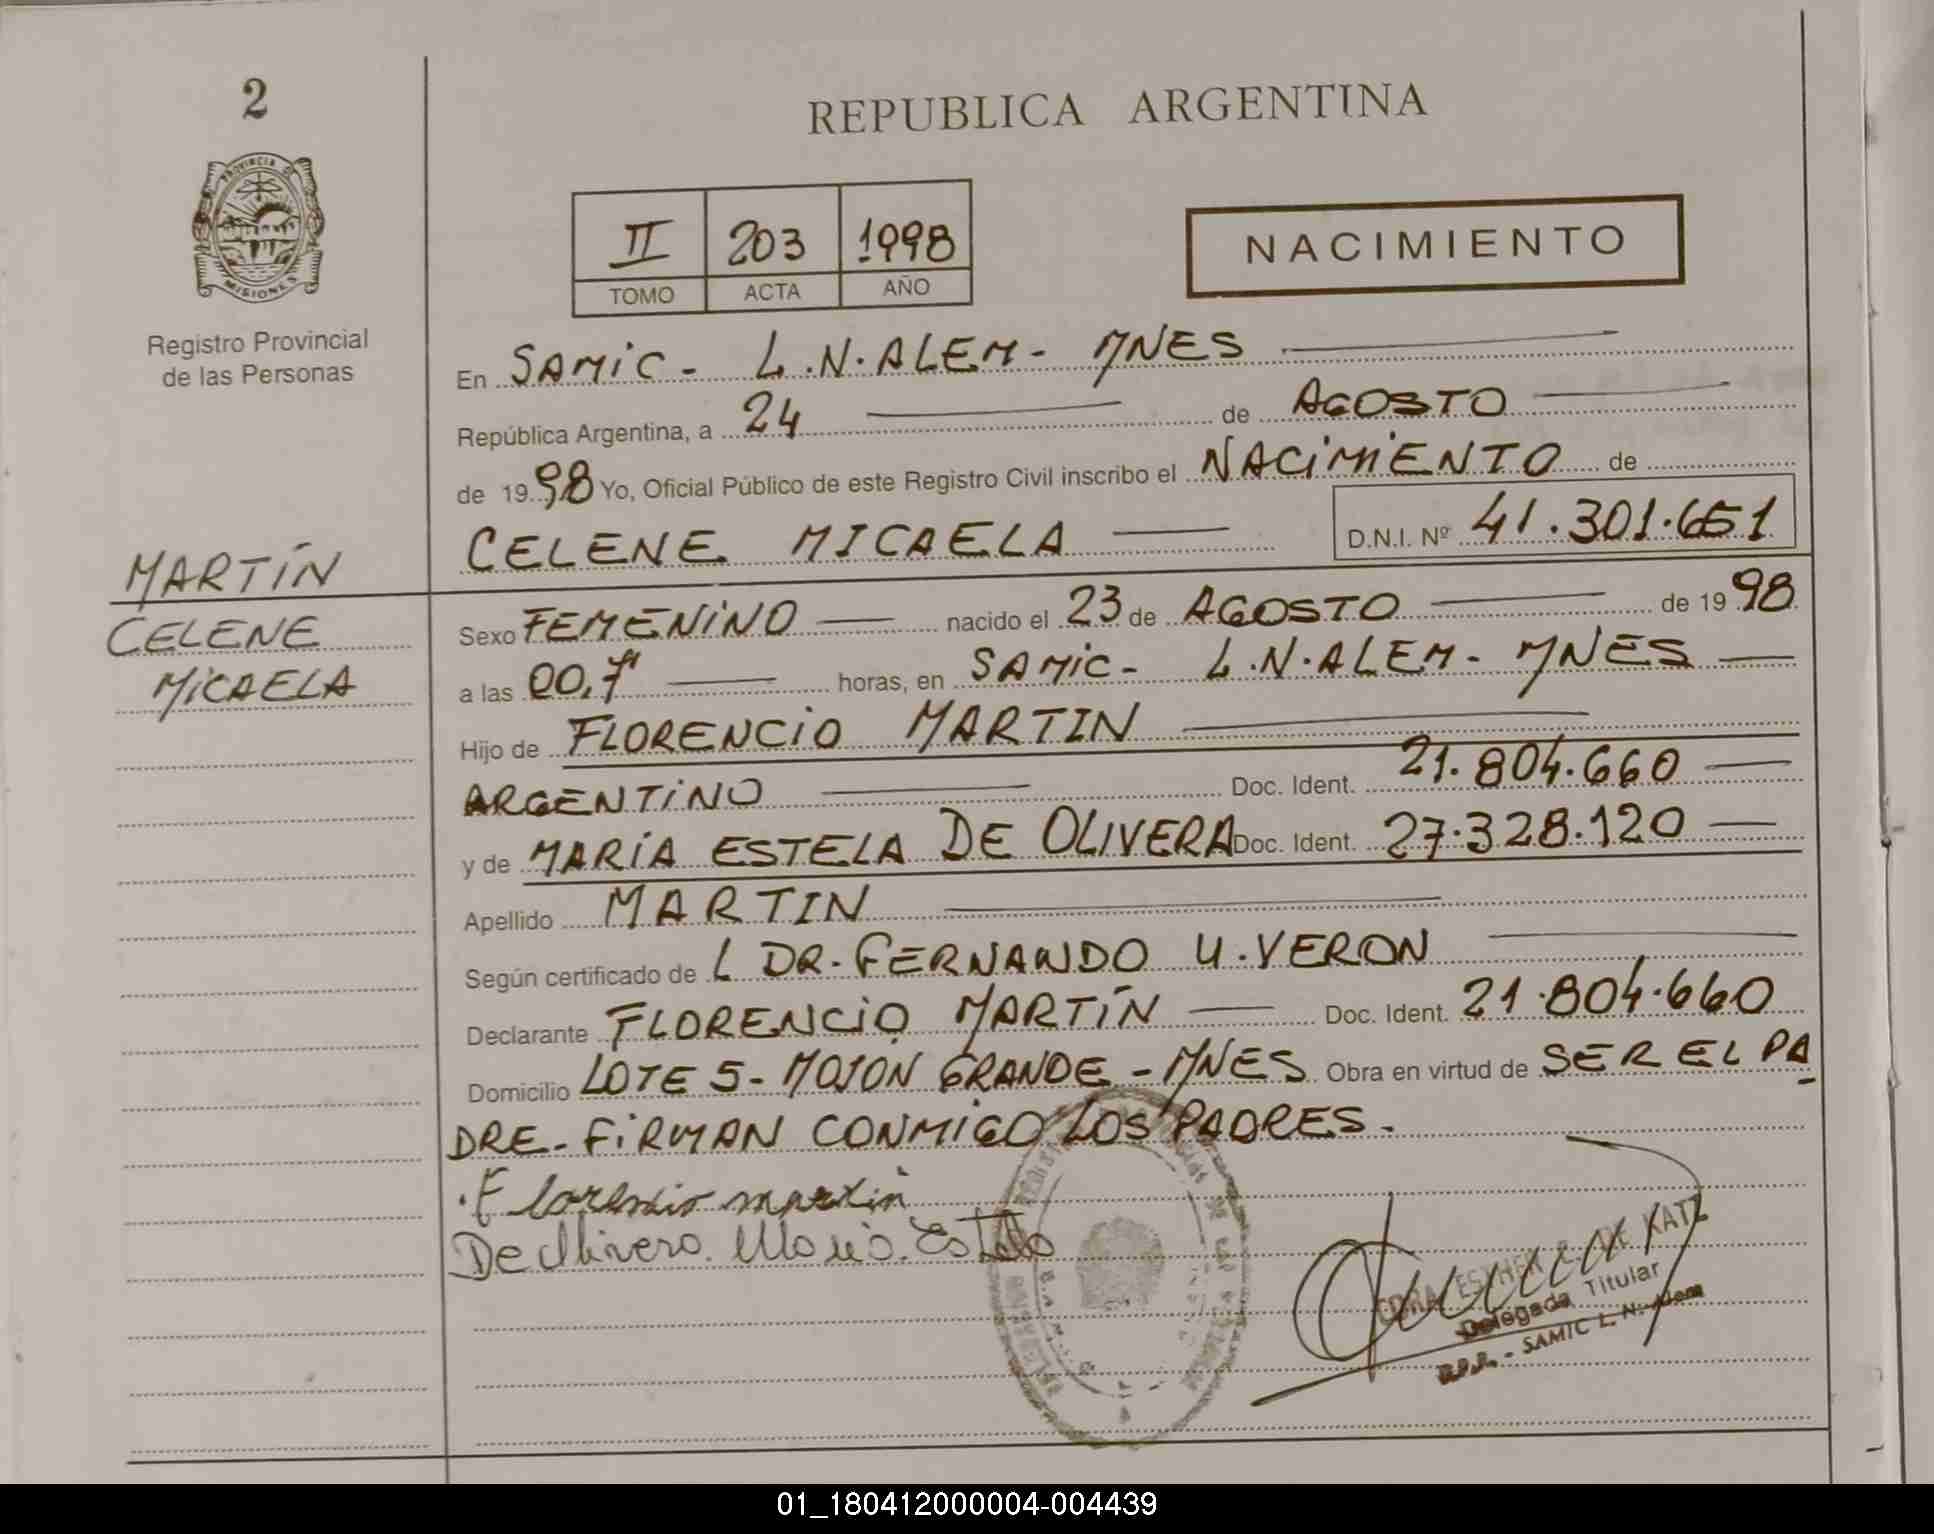 2
REPUBLICA ARGENTINA
PROVINCIA DE
MISIONES
II 203 1998
TOMO ACTA AÑO
NACIMIENTO
Registro Provincial
de las Personas
En SAMIC - L.N. ALEM - MNES
República Argentina, a 24 de AGOSTO
de 1998 Yo, Oficial Público de este Registro Civil inscribo el NACIMIENTO de
CELENE MICAELA D.N.I. Nº 41.301.651
MARTÍN
CELENE
MICAELA
Sexo FEMENINO nacido el 23 de AGOSTO de 1998
a las horas, en SAMIC - L.N. ALEM - MNES
Hijo de FLORENCIO MARTIN
ARGENTINO Doc. Ident. 21.804.660
y de MARÍA ESTELA DE OLIVERA Doc. Ident. 27.328.120
Apellido MARTIN
Según certificado de L DR. FERNANDO U. VERON
Declarante FLORENCIO MARTÍN Doc. Ident. 21.804.660
Domicilio LOTE 5 - MOJON GRANDE - MNES Obra en virtud de SER EL PA
DRE - FIRMAN CONMIGO LOS PADRES.
Florencio martin
De Olivera Maria Estela
ESTHER DE KATZ
Delegada Titular
R.P.P. - SAMIC L. N. Alem
01_180412000004-004439